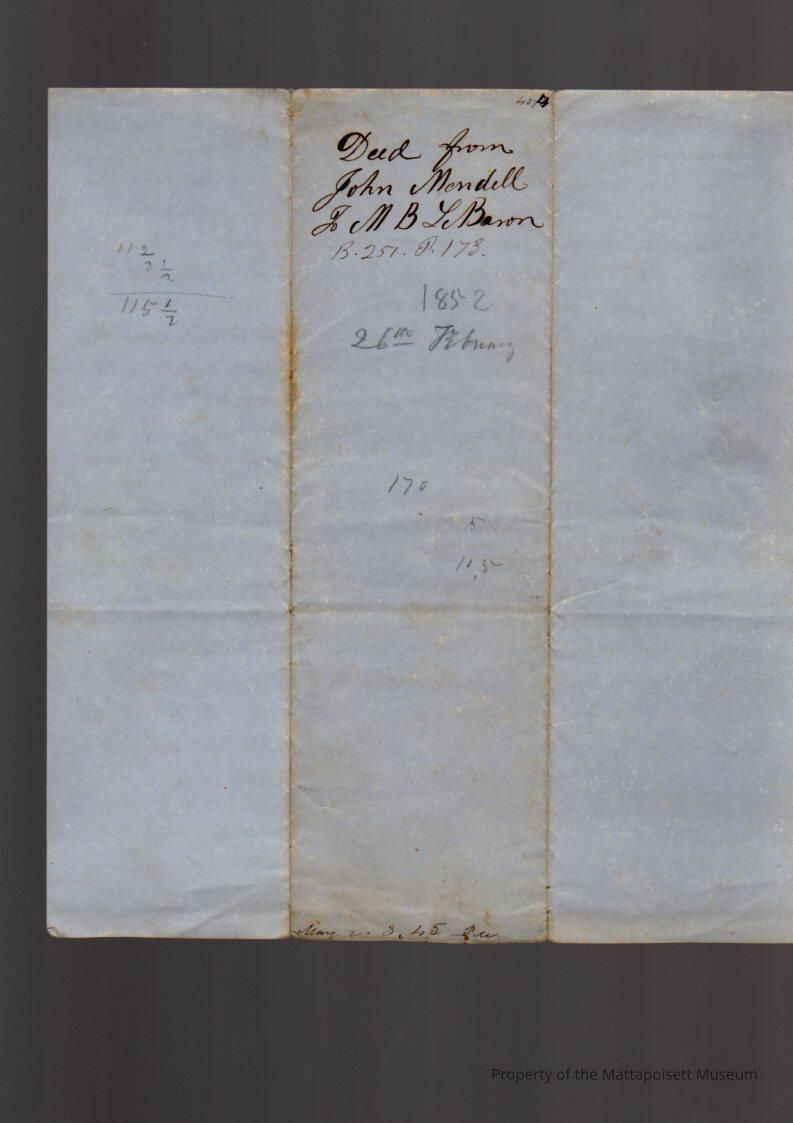 112
3 1/2
115 1/2
Deed from
John Mendell
To M B LeBaron
B. 251. P. 173.
1852
26th February
170
5
10,5
May 2. 3,45 PM
Property of the Mattapoisett Museum